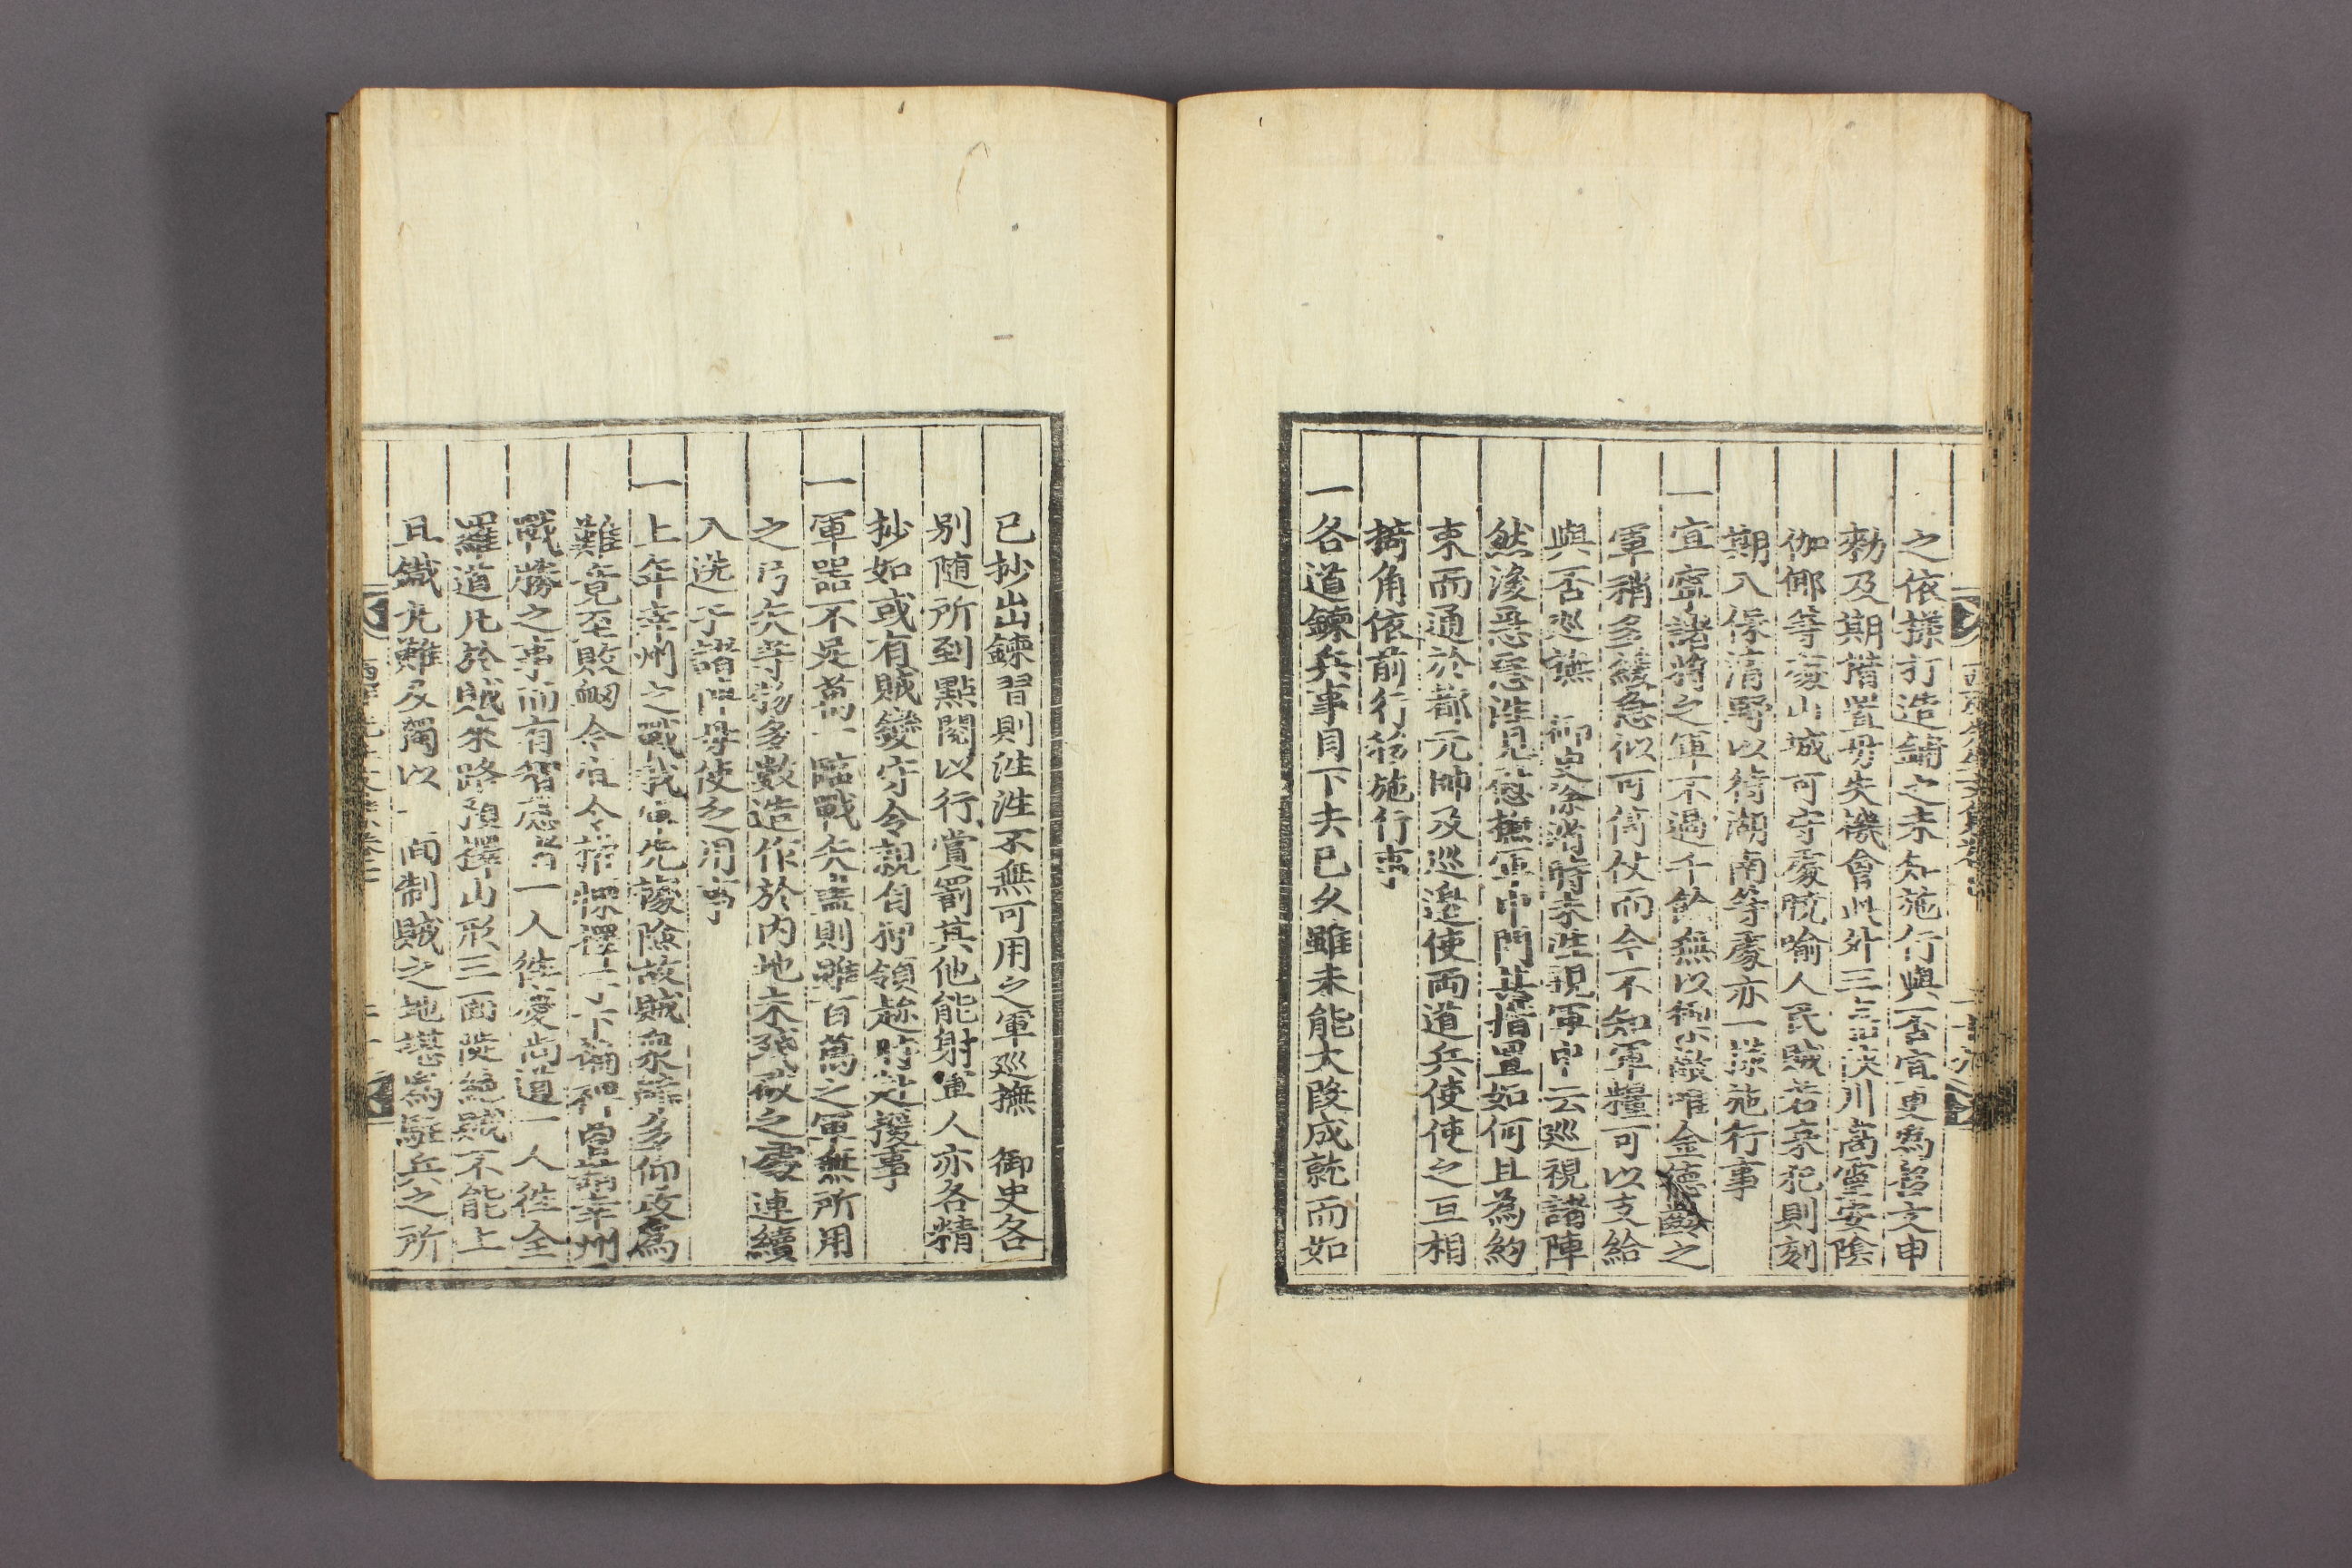 之依㨾打造鑄之未知施行與否宜更爲啓文申
勑及期措置毋失機會此外三嘉陜川高靈安陰
伽倻等處山城可守處曉喩人民賊若來犯則刻
期入保淸野以待湖南等處亦一㨾施行事
一宜寧諸將之軍不過千餘無以禦敵唯金德齡之
軍稍多緩急似可倚仗而今不知軍糧可以支給
與否巡撫 御史徐渻時未進現軍中云巡視諸陣
然後惡惡進見營撫軍中門其措置如何且為約
束而通於都元帥及巡邊使両道兵使使之互相
掎角依前行移施行事
一各道鍊兵事目下去已久雖未能大段成就而如
已抄出鍊習則徃徃不無可用之軍巡撫 御史各
別随所到點閱以行賞罰其他能射軍人亦各精
抄如或有賊變守令親自領赴時赴援事
一軍器不足萬一臨戰矢盡則雖百萬之軍無所用
之弓矢等物多數造作於內地未殘破之處連續
入送于諸陣毋使乏用事
一上年幸州之戰我軍先據險故賊衆雖多仰攻爲
難竟至敗衄今宜令擇一偏裨曾詣幸州
戰勝之事而有智慮一人徃慶尚道一人徃全
羅道凡於賊來路預擇山形三面陡絶賊不能上
且鐵丸難及獨以一面制賊之地堪為駐兵之所